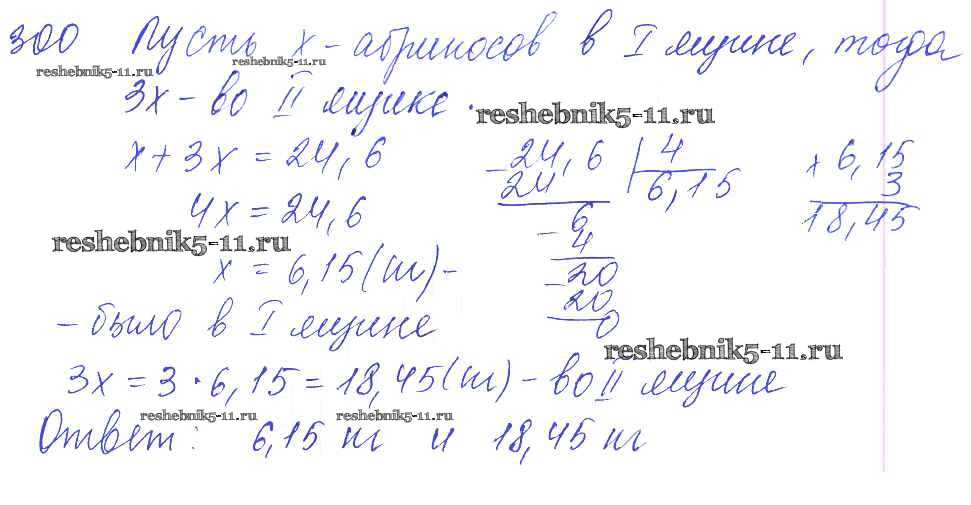 300 Пусть x - абрикосов в I ящике, тогда
reshebnik5-11.ru reshebnik5-11.ru
3x - во II ящике.
reshebnik5-11.ru
x + 3x = 24,6
4x = 24,6
reshebnik5-11.ru
x = 6,15 (кг) -
- было в I ящике
24,6 | 4
24 6,15
6
- 4
- 20
20
0
x 6,15
3
18,45
reshebnik5-11.ru
3x = 3 · 6,15 = 18,45 (кг) - во II ящике
reshebnik5-11.ru reshebnik5-11.ru
Ответ: 6,15 кг и 18,45 кг